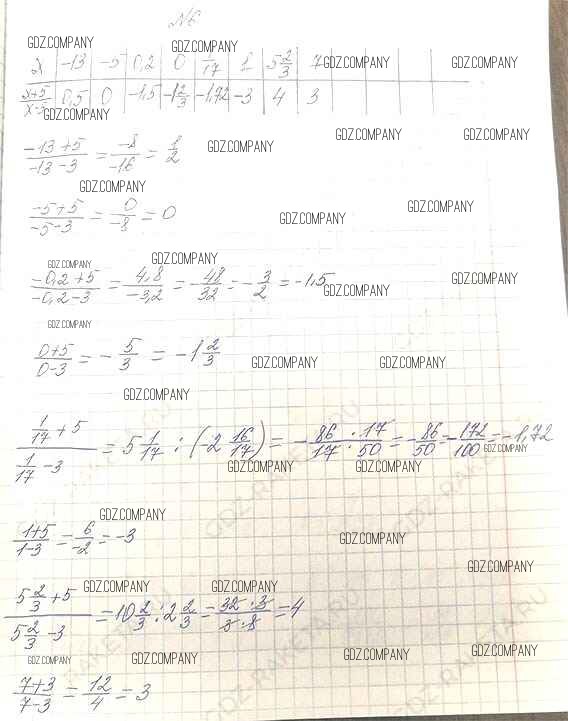 №6
GDZ.COMPANY GDZ.COMPANY
x | -13 | -5 | 0,2 | 0 | 1/17 | 1 | 5 2/3 | 7
GDZ.COMPANY GDZ.COMPANY
x+5/x-3 | 0,5 | 0 | -1,5 | -1 2/3 | -1,72 | -3 | 4 | 3
GDZ.COMPANY
GDZ.COMPANY GDZ.COMPANY
-13+5/-13-3 = -8/-16 = 1/2 GDZ.COMPANY
GDZ.COMPANY
-5+5/-5-3 = 0/-8 = 0 GDZ.COMPANY GDZ.COMPANY
GDZ.COMPANY GDZ.COMPANY
-0,2+5/-0,2-3 = 4,8/-3,2 = -48/32 = -3/2 = -1,5 GDZ.COMPANY GDZ.COMPANY
GDZ.COMPANY
0+5/0-3 = -5/3 = -1 2/3 GDZ.COMPANY GDZ.COMPANY
GDZ.COMPANY
1/17+5 / 1/17-3 = 5 1/17 : (-2 16/17) = -86·17/17·50 = -86/50 = -172/100 = -1,72
GDZ.COMPANY GDZ.COMPANY GDZ.COMPANY
GDZ-RAKETA.RU
GDZ.COMPANY
1+5/1-3 = 6/-2 = -3 GDZ.COMPANY
GDZ.COMPANY
GDZ.COMPANY GDZ.COMPANY
5 2/3+5 / 5 2/3-3 = 10 2/3 : 2 2/3 = 32·3/3·8 = 4
GDZ-RAKETA.RU
GDZ.COMPANY GDZ.COMPANY GDZ.COMPANY GDZ.COMPANY
7+3/7-3 = 12/4 = 3